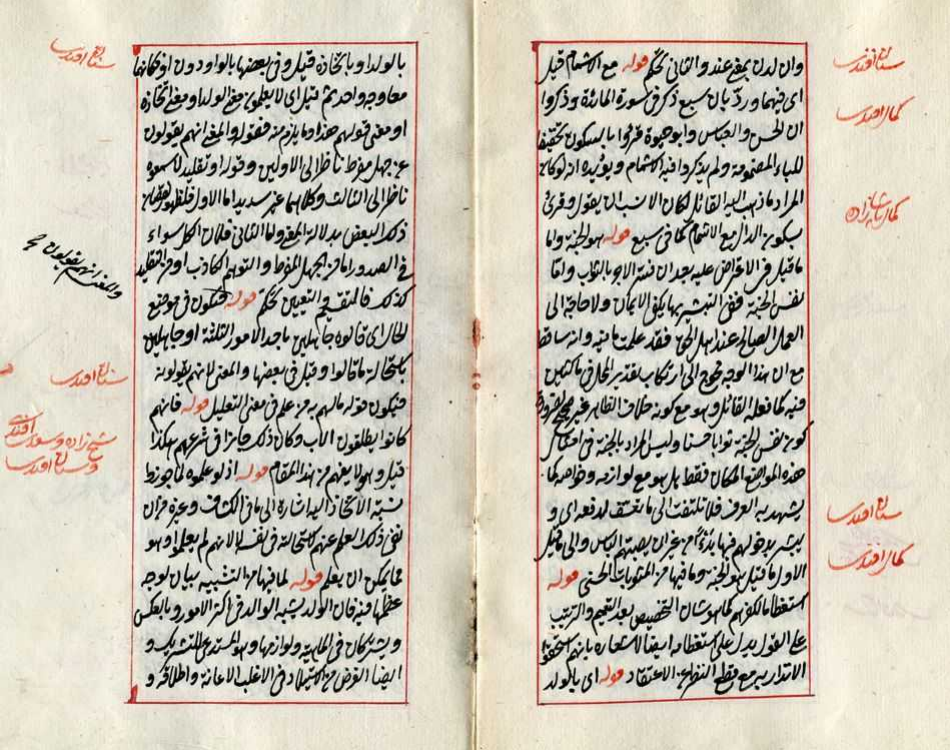 سنان افندى
كمال افندى
كمال پاشا زاده
سنان افندى
كمال افندى
وان لدن بمعنى عند والثانى تحكم قوله مع الاشمام قيل
اى فيهما ورد بان سبع ذكر فى سورة المائدة وذكروا
ان الحسن والعباس وابو حيوة قرؤا بالسكون تخفيفا
للباء المضمومة ولم يذكروا فيه الاشمام ويؤيده انه لو كان
المراد ما ذهب اليه القائل لكان الانسب ان يقول وقرئ
بسكون الدال مع الاشمام كما فى سبع قوله هو الجنة واما
ما قيل فى الاعتراض عليه بعد ان فسر الاجر بالثواب واما
نفس الجنة ففى التبشير بها يكفى الايمان ولا حاجة الى
العمل الصالح عند اهل الحق فقد علمت ما فيه وانه ساقط
مع ان هذا الوجه محوج الى ارتكاب تقدير المحل فى ماكثين
فيه كما فعله القائل وهو مع كونه خلاف الظاهر غير صحيح
كون نفس الجنة ثوابا حسنا وليس المراد بالجنة فى امثال
هذه المواضع المكان فقط بل هو مع لوازمه وخواصه كما
يشهد به العرف فلا تلتفت الى ما تعسف لدفعه اى و
يبشر بدخولهم فيها من غير ان يصيبهم الباس والى ما قيل
الاول ما قيل هو الجنة وما فيها من المثوبات الحسنى قوله
استعظاما لكفرهم كما هو شان التخصيص بعد التعميم والترتيب
على القول يدل على استعظامه ايضا لاشعاره بانهم استحقوا
الانذار به مع قطع النظر عن الاعتقاد قوله اى بالولد
سنان افندى
والمعنى انهم يقولون صح
سنان افندى
شيخ زاده وسعدى افندى
وسنان افندى
بالولد او باتخاذه قيل وفى بعضها بالواو دون او فكانهما
معا وجه واحد ثم قيل اى لا يعلمون معنى الولد او معنى اتخاذه
او معنى قولهم هذا وما يلزم منه فقوله والمعنى انهم يقولون
عن جهل مفرط ناظر الى الاولين وقوله او تقليد لما سمعوه
ناظر الى الثالث وكلاهما غير سديد اما الاول فلظهور
ذلك البعض بدلالة المعنى واما الثانى فلان الكل سواء
فى الصدور اما من الجهل المفرط والتوهم الكاذب او من التقليد
كذلك فالتقييد والتعيين تحكم قوله فتكون فى موضع
الحال اى قالوه جاهلين باحد الامور الثلثة او جاهلين
باستحالة ما قالوا وقيل فى بعضها والمعنى لانهم يقولونه
فيكون قوله ما لهم به من علم فى معنى التعليل قوله فانهم
كانوا يطلقون الاب وكان ذلك جائزا فى شرعهم هكذا
قيل وهو لا يفهم من هذا المقام قوله اذ لو علموه لما جوزوا
نسبة الاتخاذ اليه اشارة الى ما فى الكشاف وغيره من ان
نفى ذلك العلم عنهم لاستحالته فى نفسه لا لانهم لم يعلموا وهو
مما يمكن ان يعلم قوله لما فيها من التشبيه بيان لوجه
عظمها فيه فان الولد يشبه الوالد فى اكثر الامور وبالعكس
ويشتركان فى الماهية ولوازمها وهو المستدعى للتشريك و
ايضا الغرض من الاستيلاد فى الاغلب الاعانة واطلاقه و